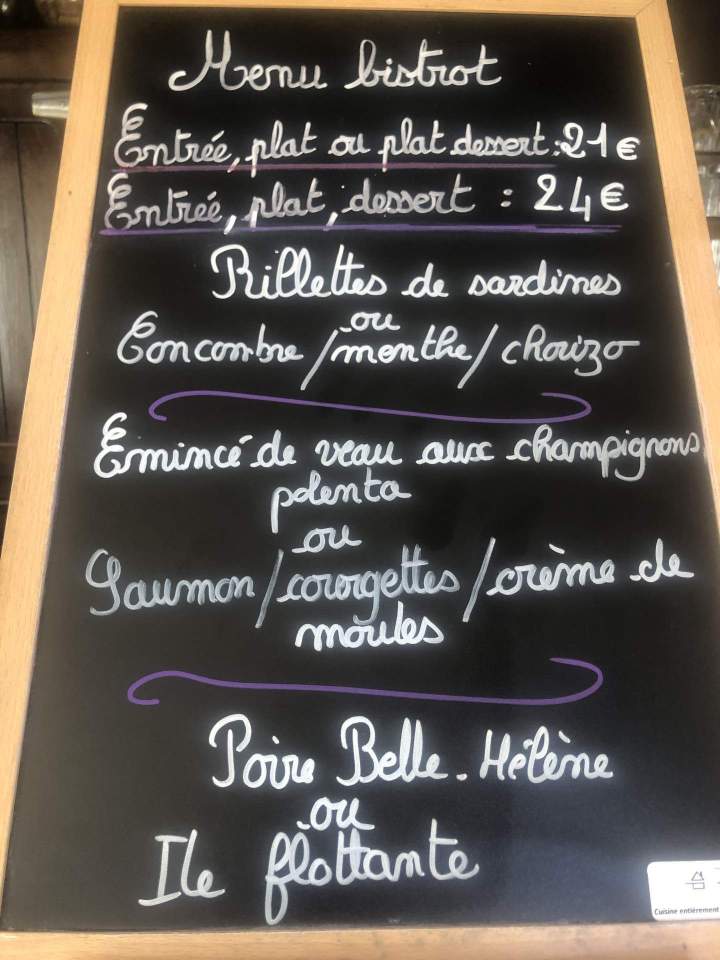 Menu bistrot
Entrée, plat ou plat dessert : 21 €
Entrée, plat, dessert : 24 €
Rillettes de sardines
ou
Concombre / menthe / chorizo
Emincé de veau aux champignons
polenta
ou
Saumon / courgettes / crème de
moules
Poire Belle-Hélène
ou
Ile flottante
Cuisine entièrement